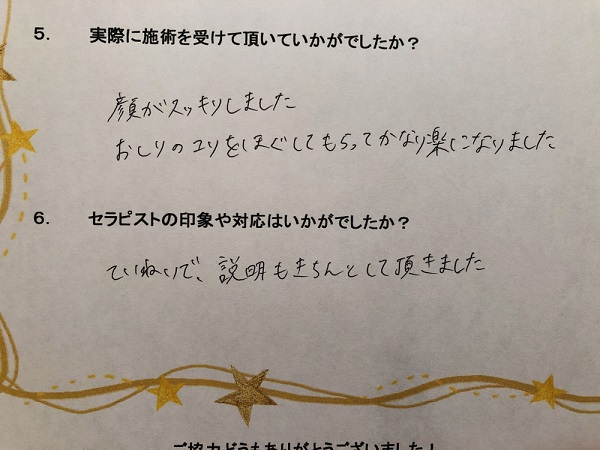 5. 実際に施術を受けて頂いていかがでしたか？
顔がスッキリしました
おしりのコリをほぐしてもらってかなり楽になりました
6. セラピストの印象や対応はいかがでしたか？
ていねいで、説明もきちんとして頂きました
ご協力どうもありがとうございました！